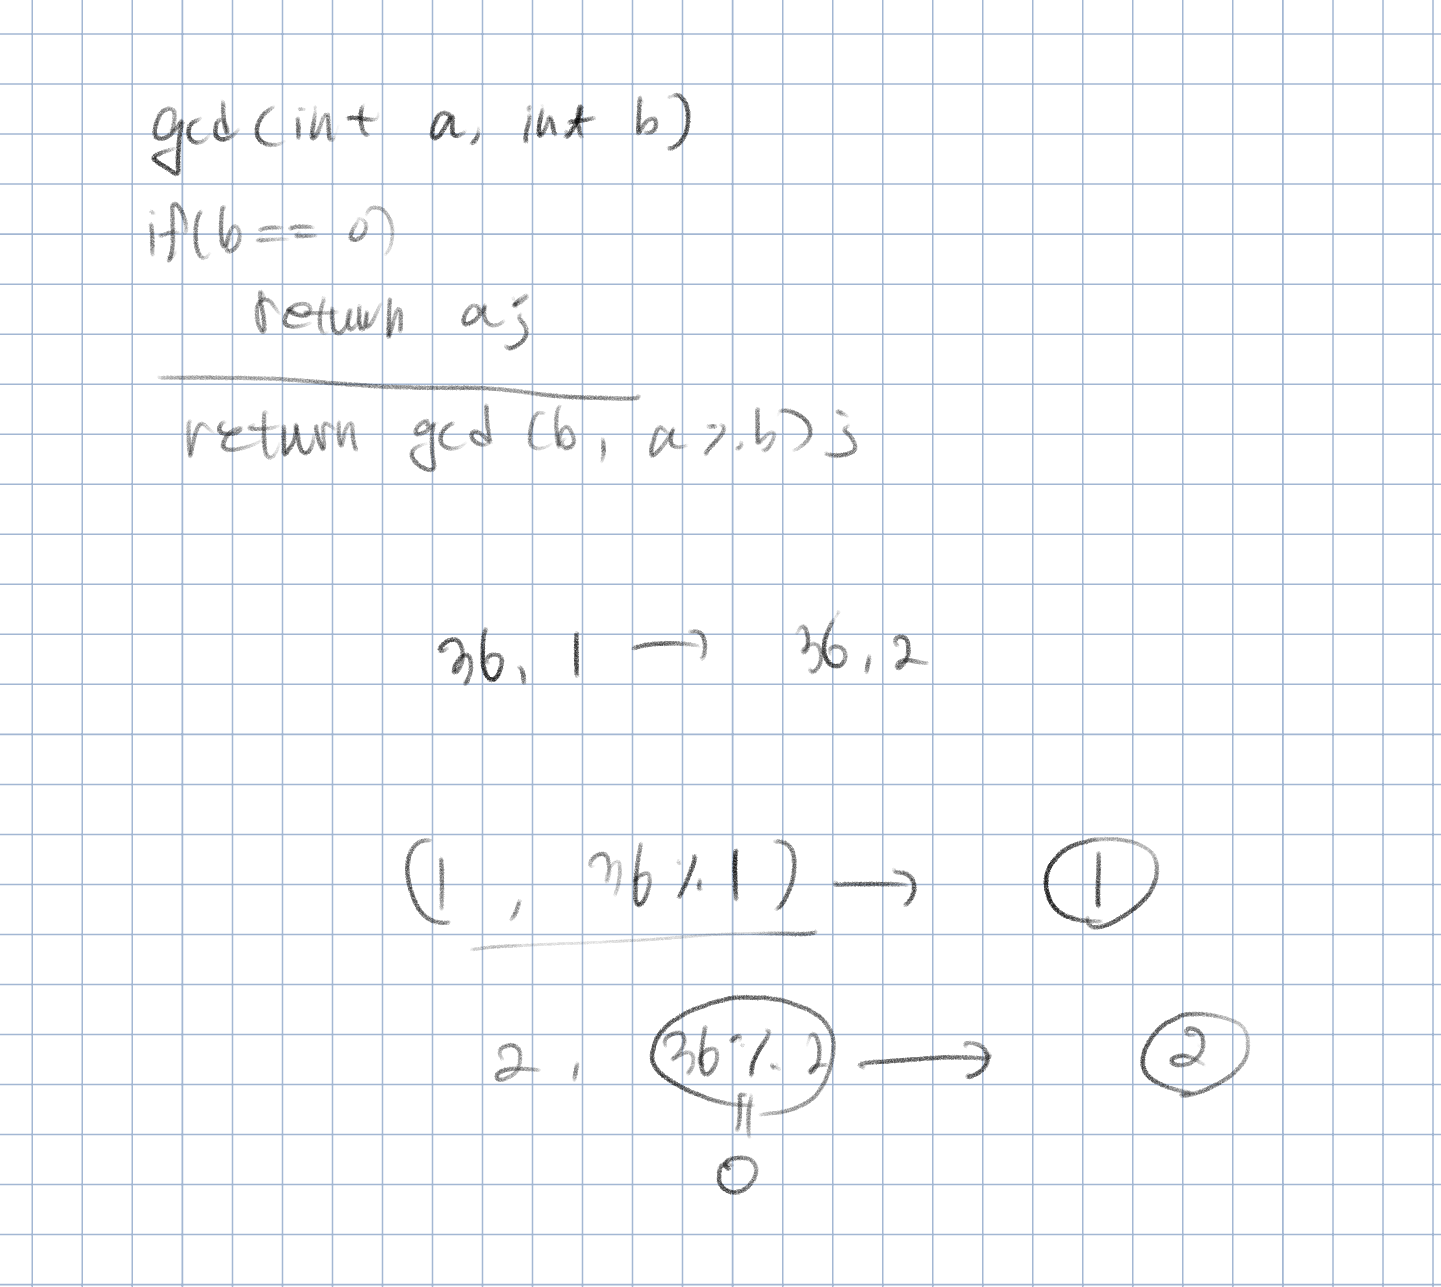 gcd(int a, int b)
if(b == 0)
return a;
return gcd (b, a % b);
36, 1 → 36, 2
(1, 36 % 1) → 1
2, 36 % 2 → 2
||
0